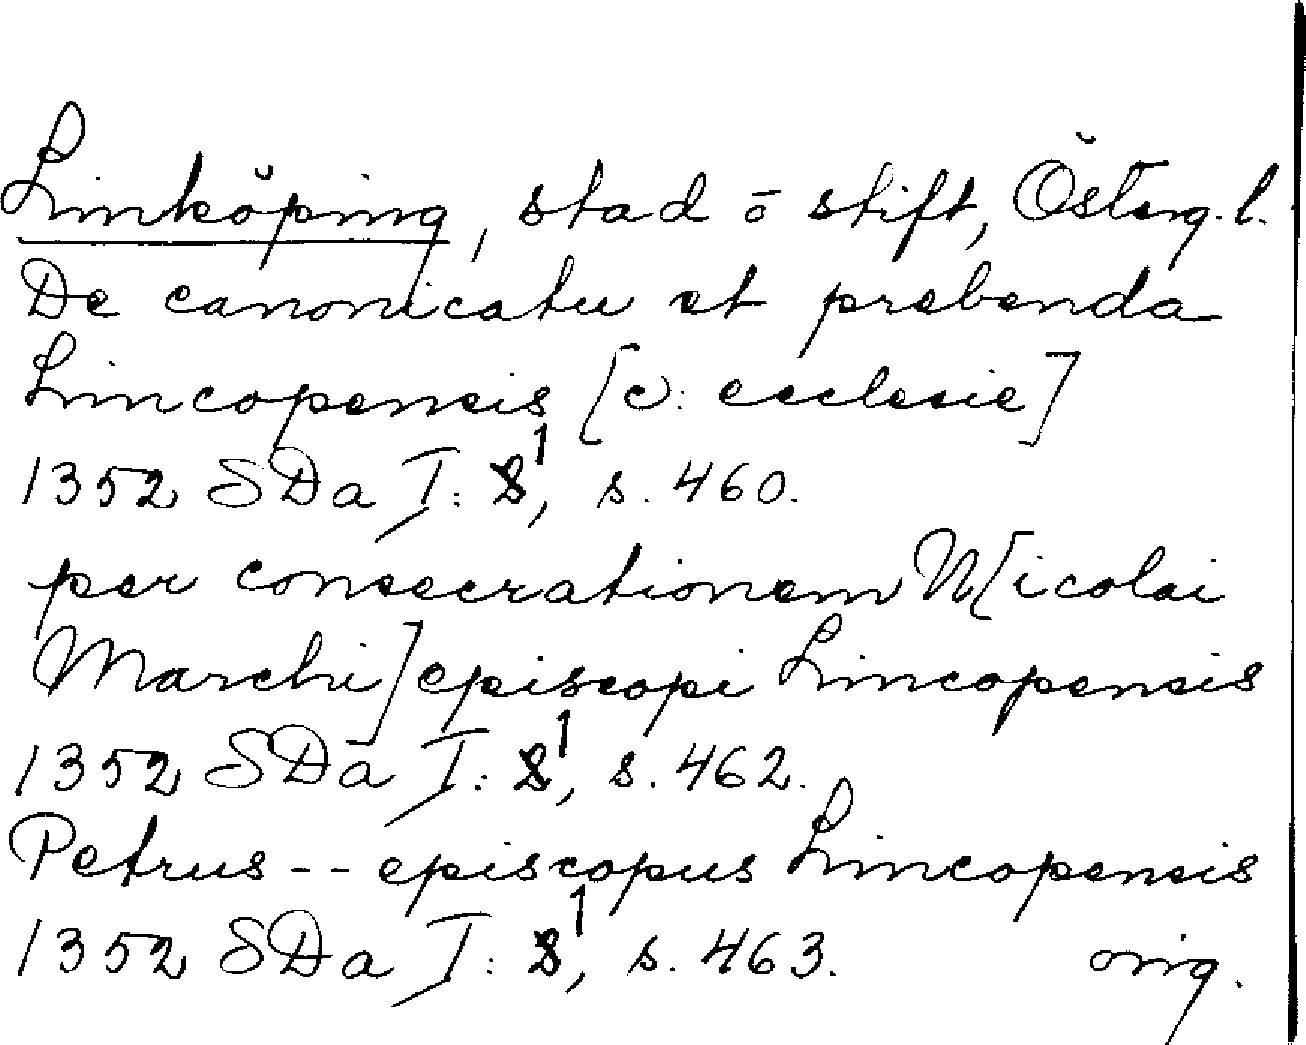 Linköping, stad ō stift, Österg. l.
De canonicatu et prebenda
Lincopensis [ɔ: ecclesie]
1352 SDa I: 8¹, s. 460.
per consecrationem N[icolai
Marchi] episcopi Lincopensis
1352 SDa I: 8¹, s. 462.
Petrus -- episcopus Lincopensis
1352 SDa I: 8¹, s. 463. orig.